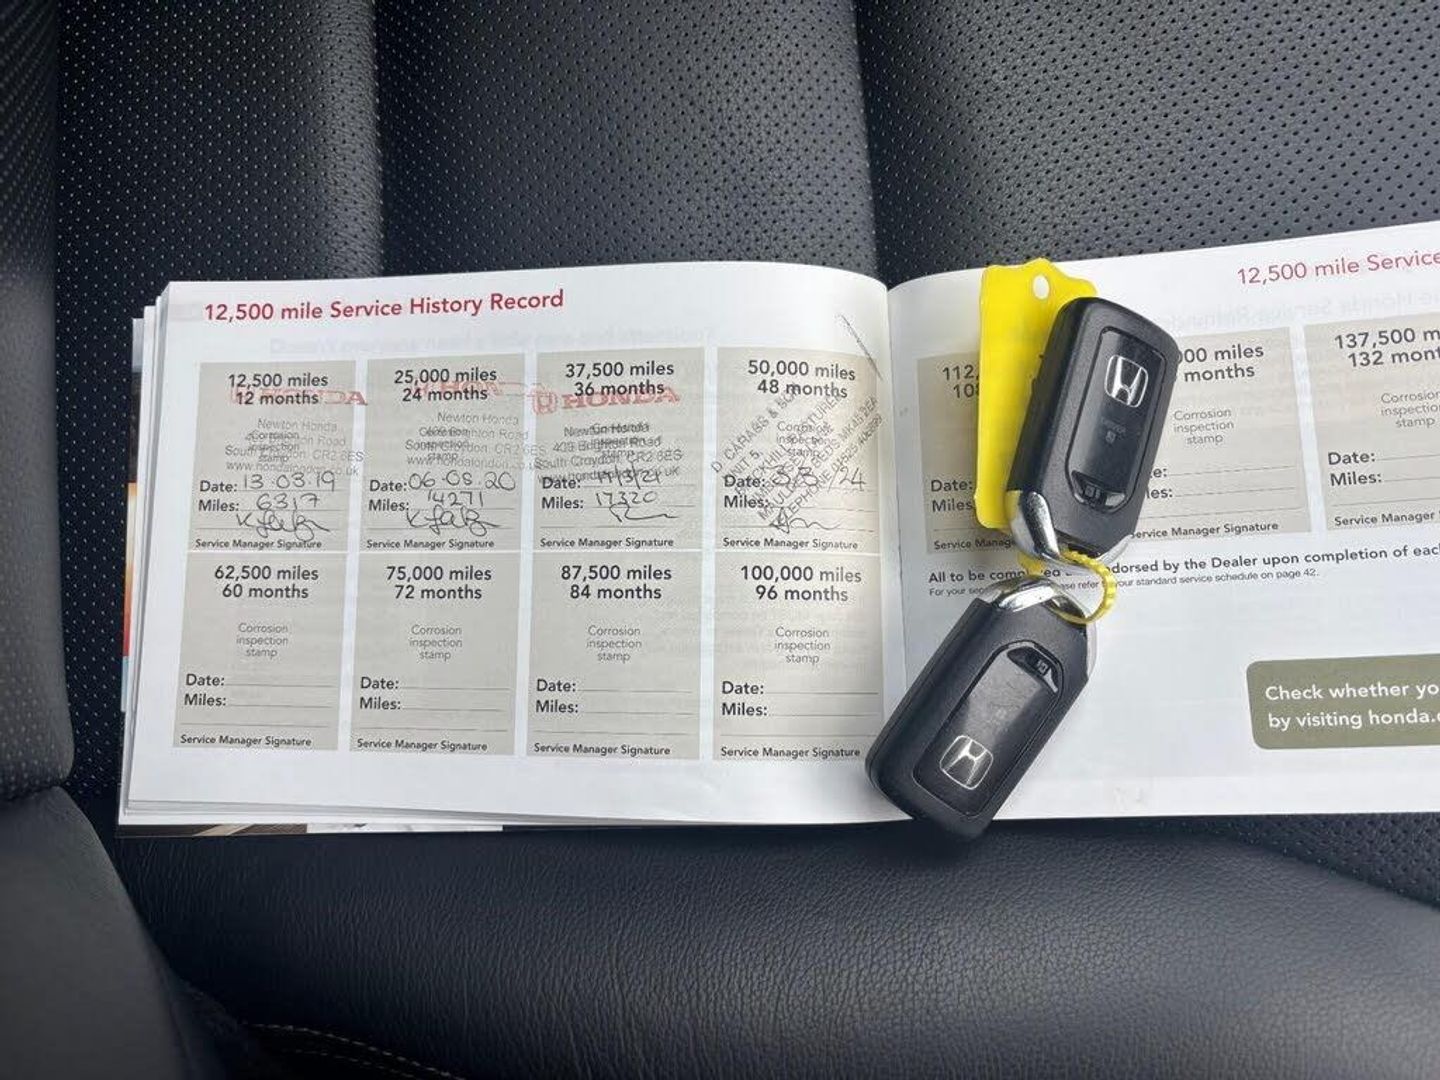 12,500 mile Service History Record
12,500 miles
12 months
HONDA
Newton Honda
Corrosion
inspection
stamp
South Croydon CR2 6ES
www.hondalondon.co.uk
Date: 13.03.19
Miles: 6317
Service Manager Signature
25,000 miles
24 months
Newton Honda
Corrosion
inspection
stamp
South Croydon CR2 6ES
www.hondalondon.co.uk
Date: 06.08.20
Miles: 14271
Service Manager Signature
37,500 miles
36 months
HONDA
Newton Honda
Corrosion
inspection
stamp
409 Brighton Road
South Croydon CR2 6ES
Date:
Miles: 17320
Service Manager Signature
50,000 miles
48 months
Corrosion
inspection
stamp
UNIT 5,
Date:
Miles:
Service Manager Signature
62,500 miles
60 months
Corrosion
inspection
stamp
Date:
Miles:
Service Manager Signature
75,000 miles
72 months
Corrosion
inspection
stamp
Date:
Miles:
Service Manager Signature
87,500 miles
84 months
Corrosion
inspection
stamp
Date:
Miles:
Service Manager Signature
100,000 miles
96 months
Corrosion
inspection
stamp
Date:
Miles:
Service Manager Signature
12,500 mile Service
112,
Date:
Miles
Service
00 miles
months
Corrosion
inspection
stamp
Service Manager Signature
137,500 m
132 mont
Corrosio
inspectio
stamp
Date:
Miles:
Service Manager
All to be dorsed by the Dealer upon completion of eac
your standard service schedule on page 42.
Check whether yo
by visiting honda.